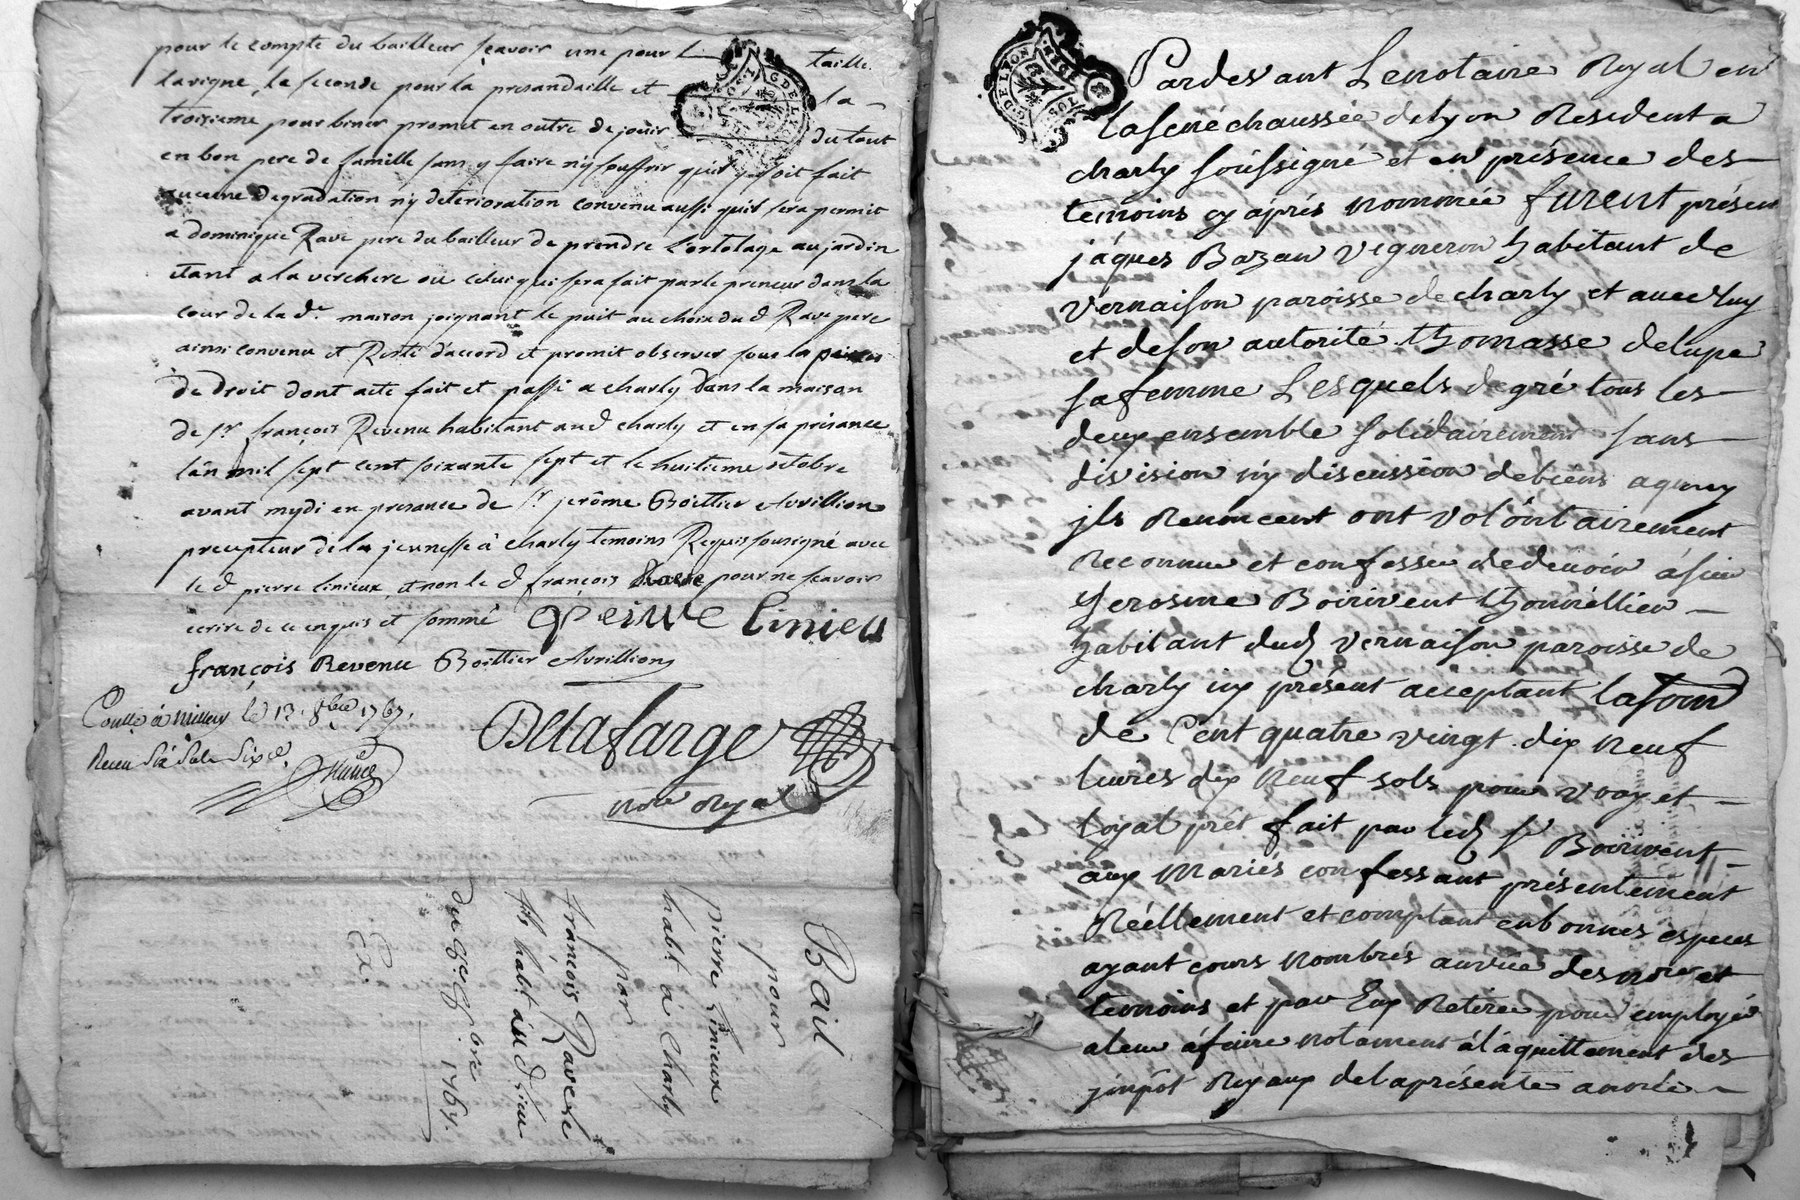 pour le compte du bailleur sçavoir une pour l taille
la vigne, la seconde pour la presandaille et la
troisieme pour biner promet en outre de jouir du tout
en bon pere de famille sans y faire n'y souffrir qu'il y soit fait
aucune degradation n'y deterioration convenu aussi qu'il sera permit
a dominique Rave pere du bailleur de prendre l'ortolage au jardin
etant a la verchere ou celui qui sera fait par le preneur dans la
cour de la d.e maison joignant le puit au choix du d Rave pere
ainsi convenu et Resté d'accord et promit observer sous la peines
de droit dont acte fait et passé a charly dans la maison
de s.r françois Revenu habitant aud charly et en sa présance
l'an mil sept cent soixante sept et le huitieme octobre
avant mydi en presance de s.r jerôme Boittier Avrillion
precepteur de la jeunesse à charly temoins Requis sousigné avec
le d pierre linieux, et non le d françois Rave pour ne sçavoir
ecrire de ce enquis et sommé peirre linieu
françois Revenu Boittier Avrillion
Coullé à Millery le 13 8bre 1767.
Receu six sols six d.
Delafarge
no.re Royal
Bail
pour
pierre Linieux
habt. à Charly
par
françois Rave le
fils habt. du d. lieu
du 8e 8bre 1767.
Ex.
Pardevant Le notaire Royal en
la senechaussée de lyon Résident a
charly soussigné et en présence des
temoins cy aprés nommée furent présen
jáques Bazan vigneron habitant de
vernaison paroisse de charly et avec luy
et de son autorité thomasse delupe
sa femme Lesquels de gré tous les
deux ensemble solidairement sans
division ny discussion de biens aquoy
jls Renoncent ont volontairement
reconnue et confessée de devoir à sieur
Jerosme Boirivent thonnellier
habitant dud vernaison paroisse de
charly icy présent acceptant la som
de Cent quatre vingt dix neuf
livres dix neuf sols pour vray et
loyal prét fait par led s.r Boirivent
aux Mariés confessant présentement
Réellement et comptant en bonnes especes
ayant cours nombrés au vüe des no.re et
temoins et par Eux Retirée pour employé
a leur afaire notament à l'aquittement des
jmpôt Royaux de la présente année